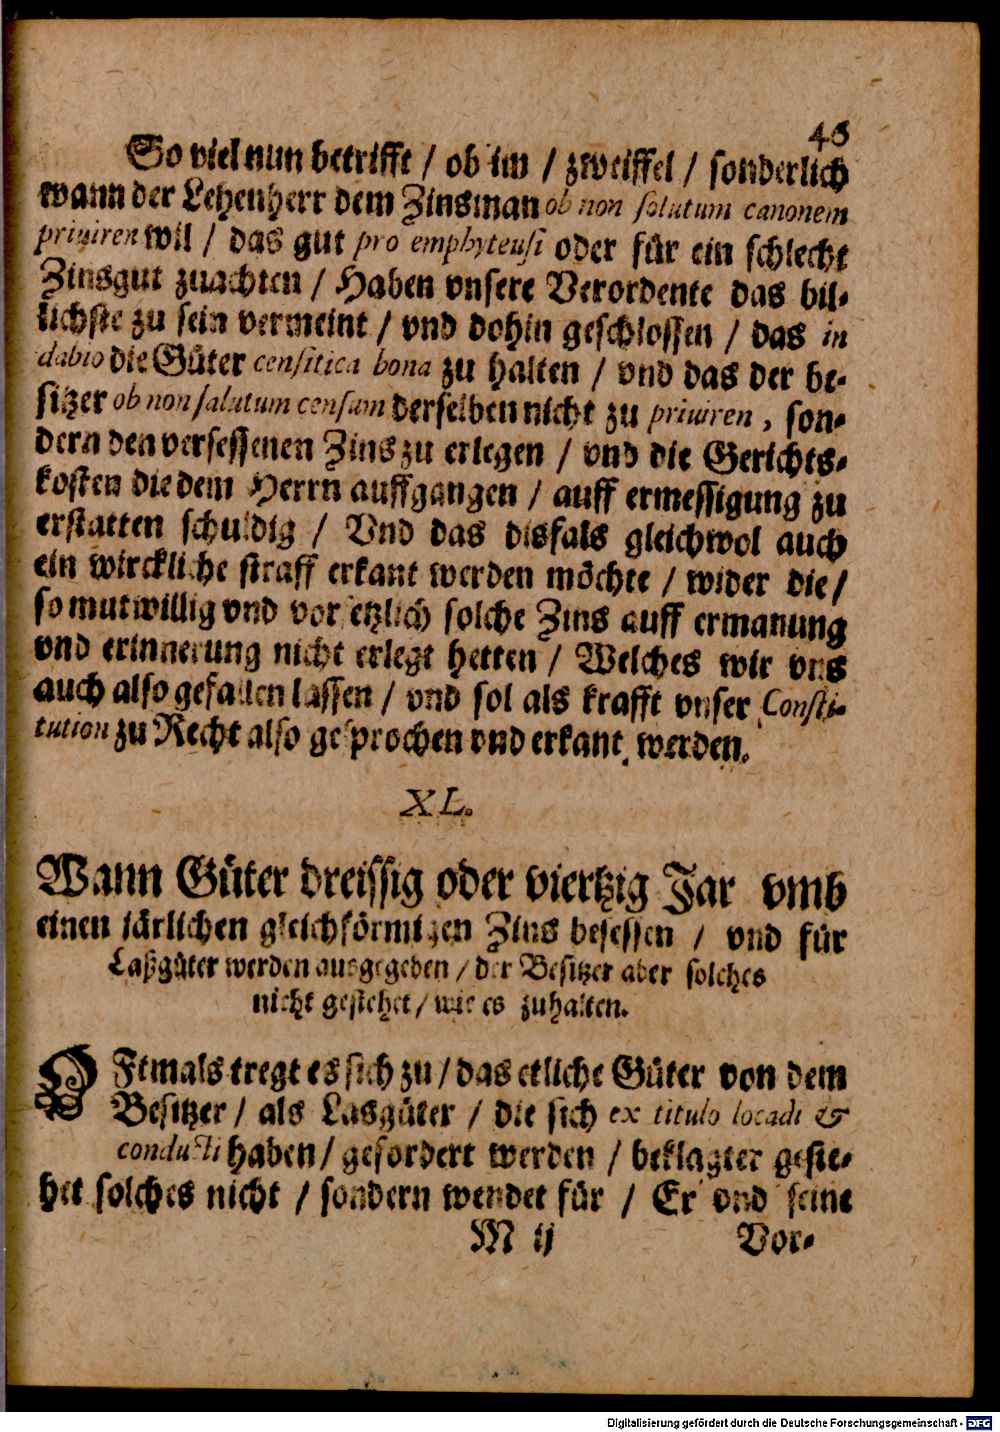 46
So viel nun betrifft / ob im / zweiffel / sonderlich
wann der Lehenherr dem Zinsman ob non solutum canonem
priuiren wil / das gut pro emphyteusi oder für ein schlecht
Zinsgut zuachten / Haben vnsere Verordente das bil-
lichste zu sein vermeint / vnd dohin geschlossen / das in
dabio die Güter censitica bona zu halten / vnd das der be-
sitzer ob non salutum censum derselben nicht zu priuiren, son-
dern den versessenen Zins zu erlegen / vnd die Gerichts-
kosten die dem Herrn auffgangen / auff ermessigung zu
erstatten schuldig / Vnd das disfals gleichwol auch
ein wirckliche straff erkant werden möchte / wider die /
so mutwillig vnd vorsetzlich solche Zins auff ermanung
vnd erinnerung nicht erlegt hetten / Welches wir vns
auch also gefallen lassen / vnd sol als krafft vnser Consti-
tution zu Recht also gesprochen vnd erkant werden.
XL.
Wann Güter dreissig oder viertzig Jar vmb
einen järlichen gleichförmigen Zins besessen / vnd für
Laßgüter werden ausgegeben / der Besitzer aber solches
nicht gestehet / wie es zuhalten.
OFtmals tregt es sich zu / das etliche Güter von dem
Besitzer / als Lasgüter / die sich ex titulo locadi &
conducti haben / gefordert werden / beklagter geste-
het solches nicht / sondern wendet für / Er vnd seine
M ij Vor-
Digitalisierung gefördert durch die Deutsche Forschungsgemeinschaft - DFG